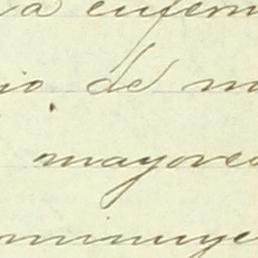 a enferm
io de m
mayores
minuye